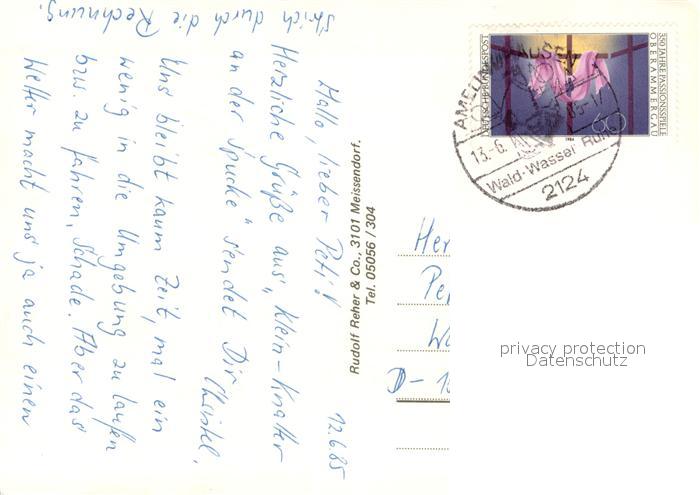 12.6.85
Hallo, lieber Peti!
Herzliche Grüße aus „Klein-Knatter
an der Spucke" sendet Dir
Christel.
Uns bleibt kaum Zeit, mal ein
wenig in die Umgebung zu laufen
bzw. zu fahren. Schade. Aber das
Wetter macht uns ja auch einen
Strich durch die Rechnung.
Rudolf Reher & Co., 3101 Meissendorf.
Tel. 05056 / 304
DEUTSCHE BUNDESPOST
350 JAHRE PASSIONSSPIELE
OBERAMMERGAU
60
1984
13.-6.
Wald·Wasser
2124
Her
Pe
D-1
privacy protection
Datenschutz